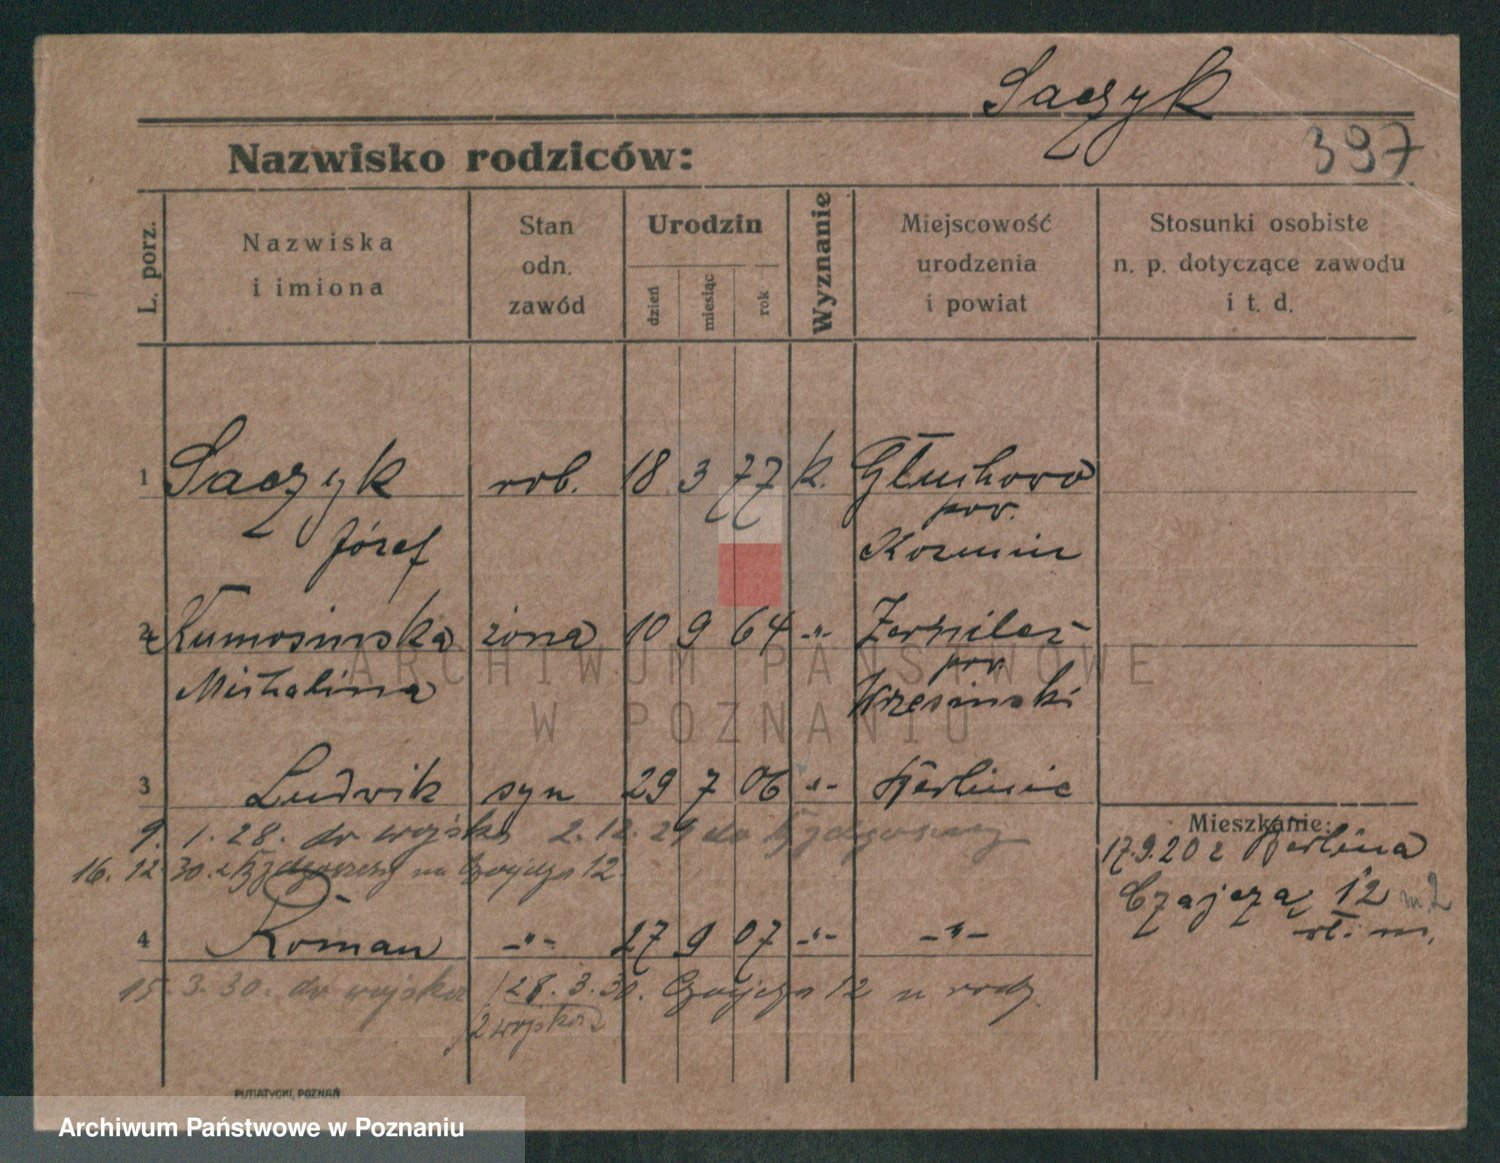 Saczyk
397
Nazwisko rodziców:
L. porz.
Nazwiska
i imiona
Stan
odn.
zawód
Urodzin
dzień
miesiąc
rok
Wyznanie
Miejscowość
urodzenia
i powiat
Stosunki osobiste
n. p. dotyczące zawodu
i t. d.
1 Saczyk rob. 18 3 77 k. Głuchowo
Józef pow.
Kozmin
2 Kumosinska żona 10 9 64 -"-
Michalina pow.
Wrzesinski
3 Ludwik syn 29 7 06 -"- Berlinie
9. 1. 28. do wojska 2. 12. 29 do Bydgoszczy
16. 12 30. z Bydgoszczy na Czajcza 12.
4 Roman -"- 27 9 07 -"- -"-
15. 3. 30. do wojska 28. 3. 30. Czajcza 12 u rodz.
z wojska
Mieszkanie:
17.9.20 z Berlina
Czajczą 12 m 2
PUTIATYCKI, POZNAŃ
ARCHIWUM PAŃSTWOWE
W POZNANIU
Archiwum Państwowe w Poznaniu